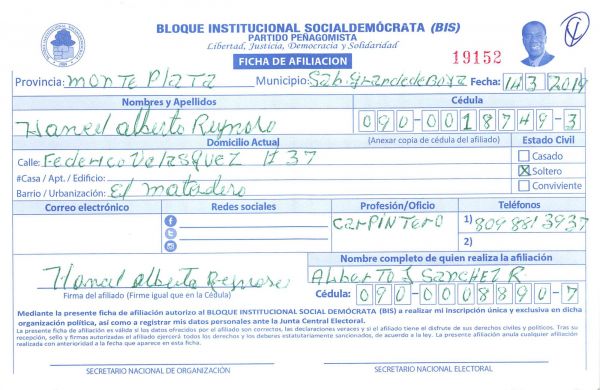 BLOQUE INSTITUCIONAL SOCIALDEMÓCRATA (BIS)
PARTIDO PEÑAGOMISTA
Libertad, Justicia, Democracia y Solidaridad
FICHA DE AFILIACION
19152
Provincia: Monte Plata Municipio: Sab. Grande de Boya Fecha: 14 3 2019
Nombres y Apellidos Cédula
Hancel Alberto Reynoso 090-0018749-3
Domicilio Actual (Anexar copia de cédula del afiliado) Estado Civil
Calle: Federico Velasquez # 37 Casado
#Casa / Apt. / Edificio: X Soltero
Barrio / Urbanización: El matadero Conviviente
Correo electrónico Redes sociales Profesión/Oficio Teléfonos
carpintero 1) 809 881 3937
2)
Nombre completo de quien realiza la afiliación
Hancel Alberto Reynoso Alberto S Sanchez R.
Firma del afiliado (Firme igual que en la Cédula) Cédula: 090-0008890-7
Mediante la presente ficha de afiliación autorizo al BLOQUE INSTITUCIONAL SOCIAL DEMÓCRATA (BIS) a realizar mi inscripción única y exclusiva en dicha
organización política, así como a registrar mis datos personales ante la Junta Central Electoral.
La presente ficha de afiliación es válida si los datos ofrecidos por el afiliado son correctos, las declaraciones veraces y si el afiliado tiene el disfrute de sus derechos civiles y políticos. Tras su
recepción, sello y firmas autorizadas el afiliado ejercerá todos los derechos y los deberes estatutariamente sancionados, de acuerdo a la ley. La presente afiliación anula cualquier afiliación
realizada con anterioridad a la fecha que aparece en esta ficha.
SECRETARIO NACIONAL DE ORGANIZACIÓN SECRETARIO NACIONAL ELECTORAL